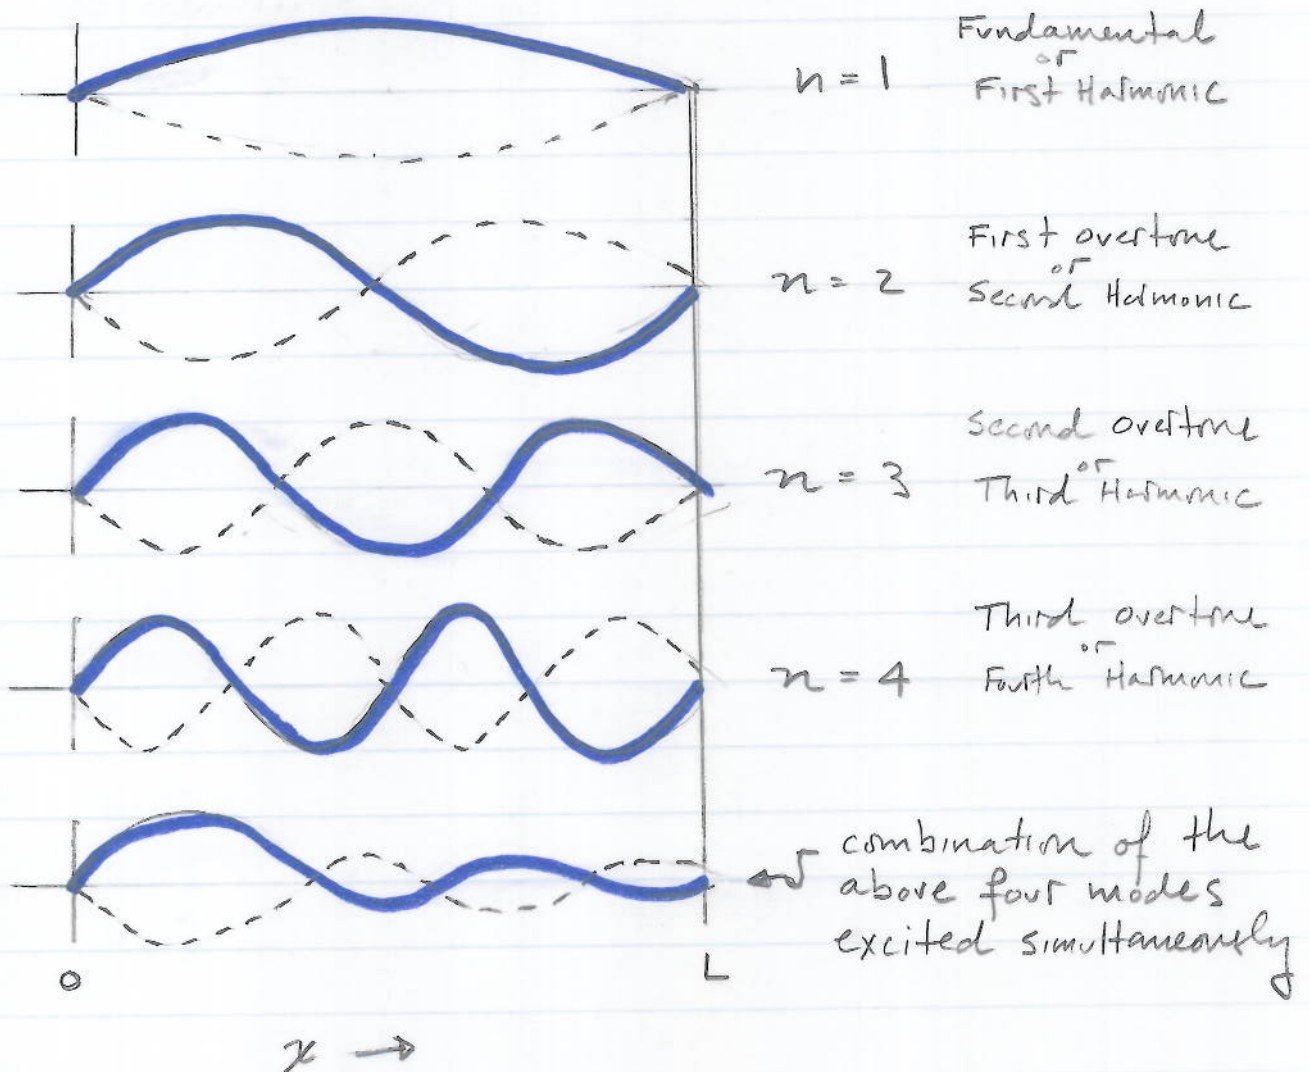 n = 1
Fundamental
or
First Harmonic
n = 2
First overtone
or
Second Harmonic
n = 3
Second overtone
or
Third Harmonic
n = 4
Third overtone
or
Fourth Harmonic
combination of the
above four modes
excited simultaneously
0
L
x →